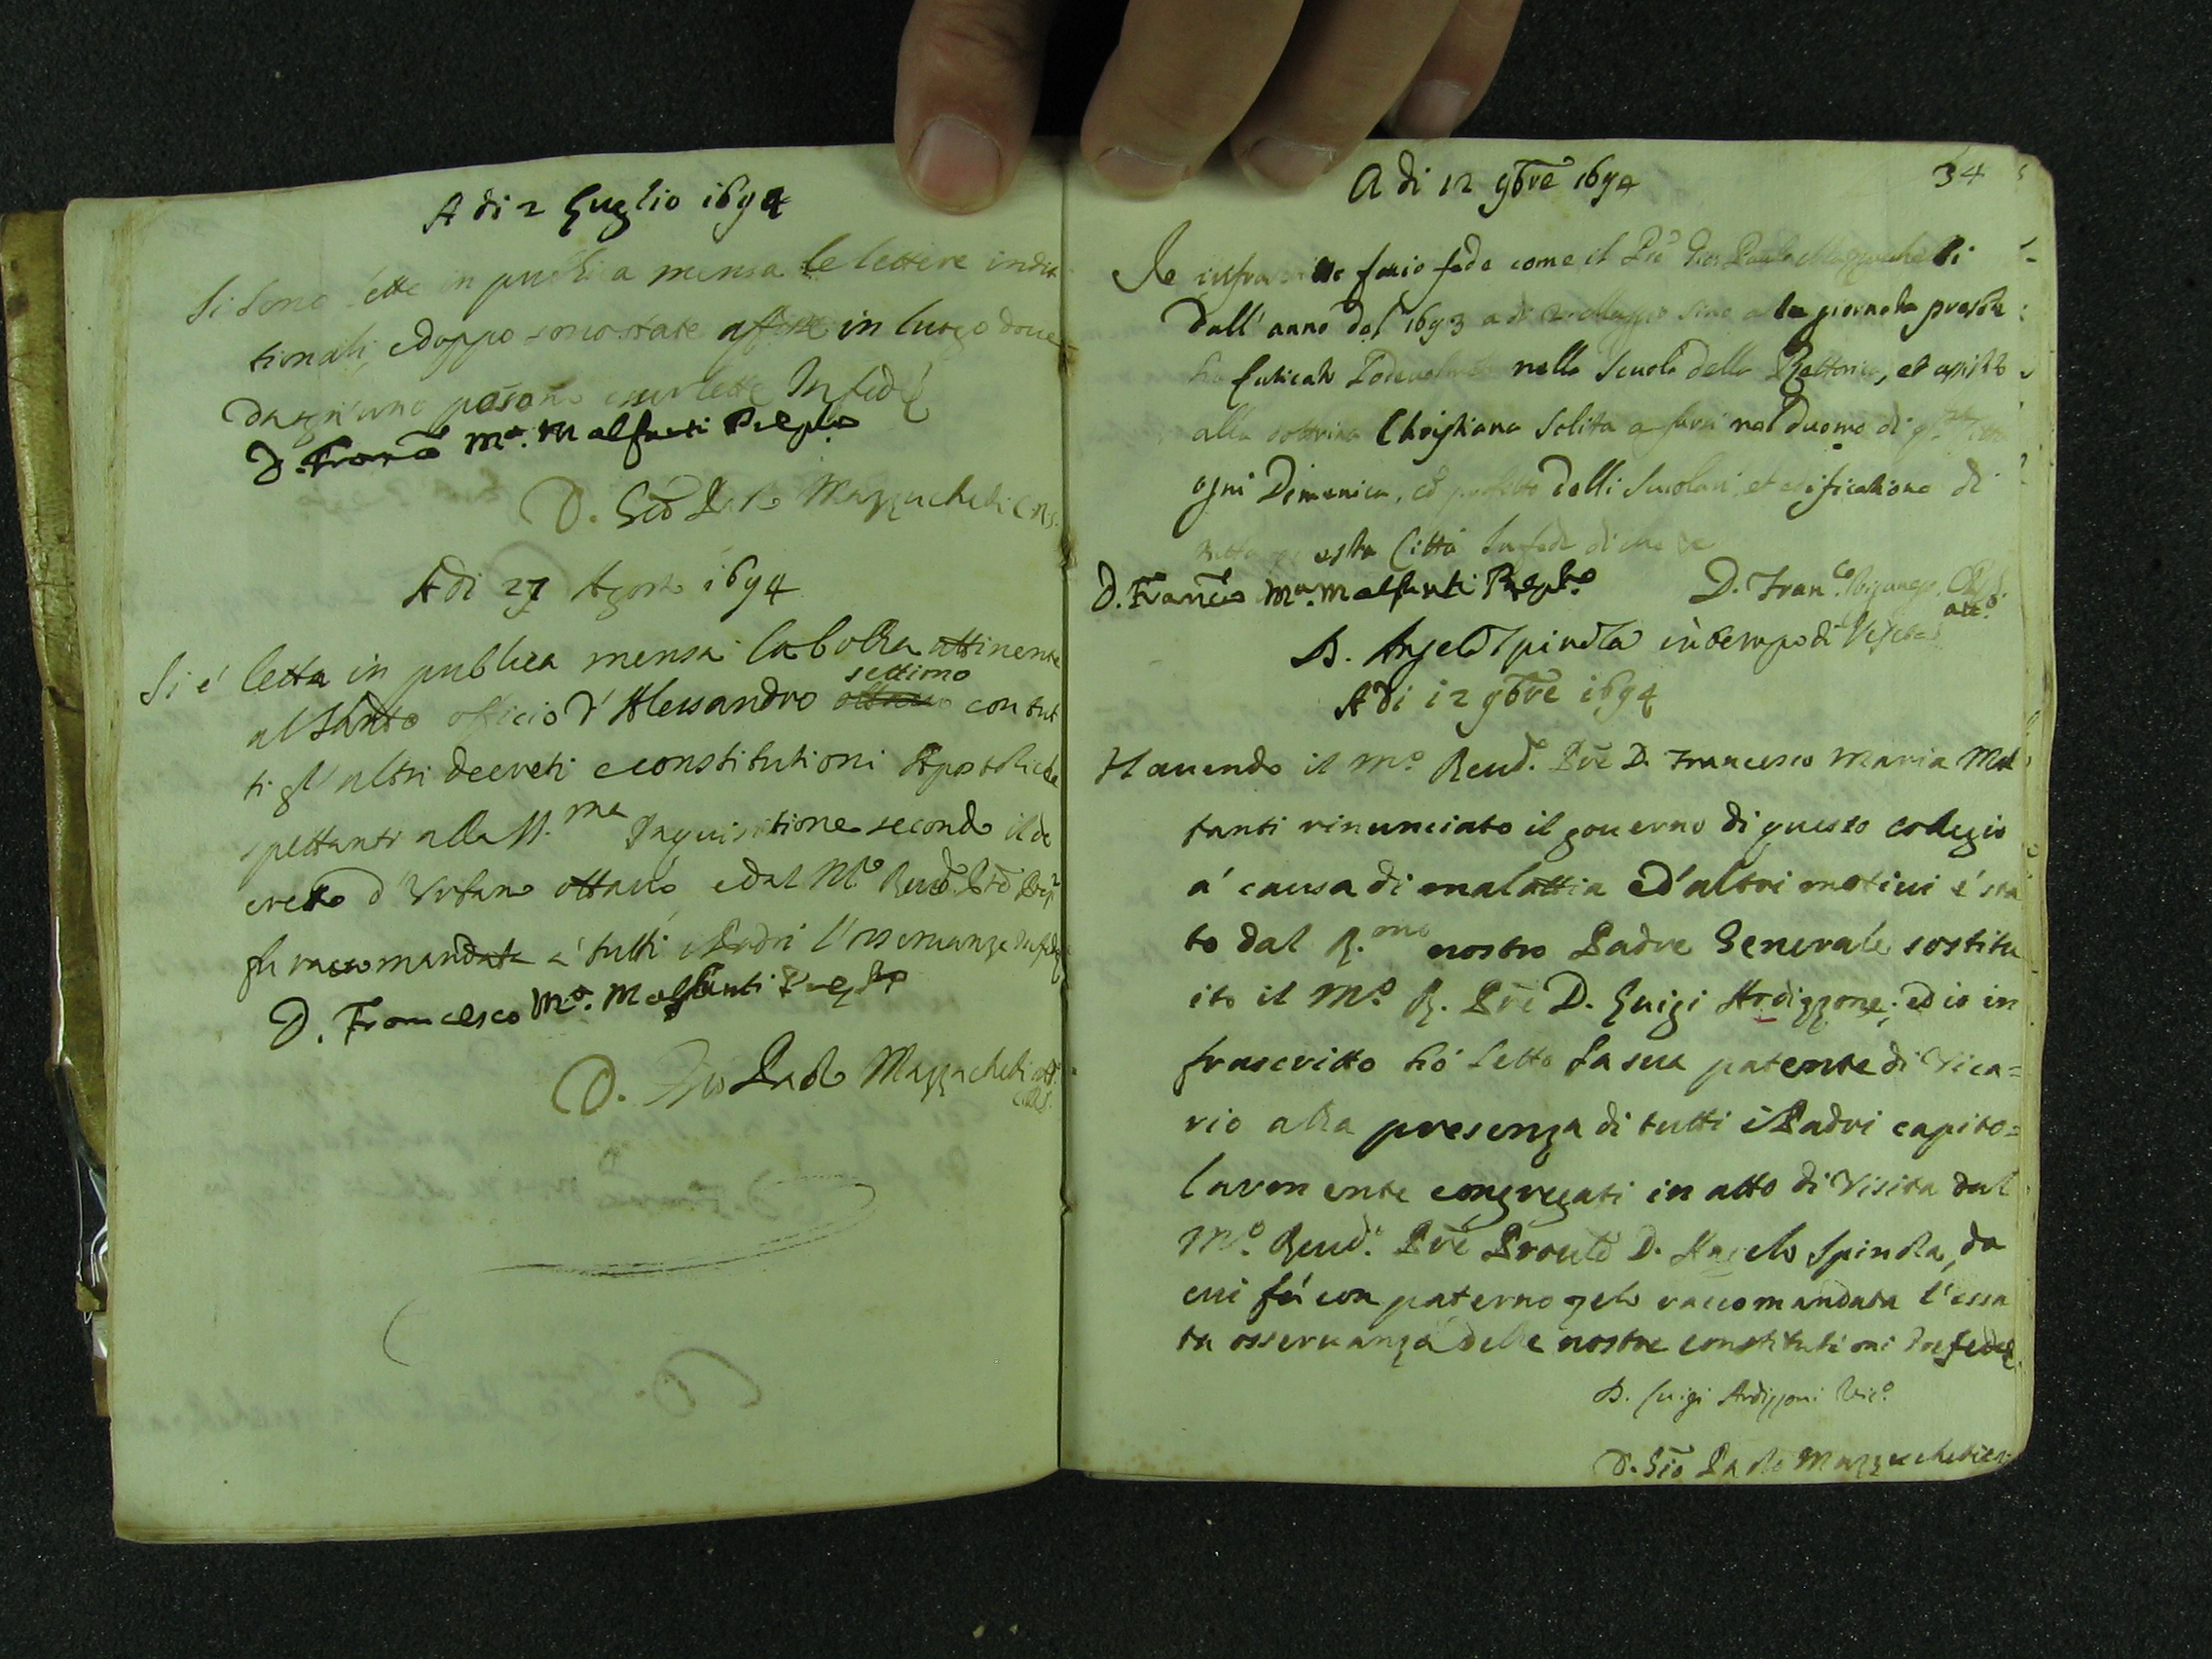 A di 2 Luglio 1694
Si sono lette in publica mensa le lettere indit
tionali, e doppo sono state affisse in luogo doue
da ogn'uno possono esser lette In fede
D. Franc.o M.a Malfanti Prep.to
D. Gio Paolo Mazzucheli C.R.S.
A di 27 Agosto 1694
Si e' letta in publica mensa la bolla attinente
al Santo officio d'Alessandro settimo con tut
ti gl'altri decreti e constitutioni Apostoliche
spettanti alla SS.ma Inquisitione secondo il de
creto d'Urbano ottauo e dal M.o Reud.o Prē
fu raccomandata a' tutti i Padri l'osseruanza In fede
D. Francesco M.a Malfanti Prep.to
D. Gio Paolo Mazzucheli att.
C.R.S.
A di 12 9bre 1694
34
Io infrascritto facio fede come il Prē Gio: Paulo Mazzucheli
dall'anno del 1693 a di Maggio sino alla giornata presēte
ha faticato lodeuolmēte nella Scuola della Rettorica, et assistito
alla dottrina Christiana solita a farsi nel duomo di
ogni Dimenica, cō profitto delli Scuolari, et edificatione di
tutta questa Città In fede di che
D. Franc.o M.a Malfanti Prep.to D. Fran.co C.R.S.
att.o
D. Angelo Spinola in tempo di Visita
A di 12 9bre 1694
Hauendo il M.o Reud.o Prē D. Francesco Maria Mal
fanti rinunciato il gouerno di questo colegio
a' causa di malattia e d'altri motiui e' sta
to dal R.mo nostro Padre Generale sostitu
ito il M.o R. Prē D. Luigi Ardizzone; ed io in
frascritto hò letto la sua patente di Vica=
rio alla presenza di tutti i Padri capito=
larmente congregati in atto di Visita dal
M.o Reud.o Prē Prouīē D. Angelo Spinola, da
cui fù con paterno zelo raccomandata l'essa
ta osseruanza delle nostre constitutioni In fede
D. Luigi Ardizzoni Vic.o
D. Gio Paolo Mazzucheli C.R.S.